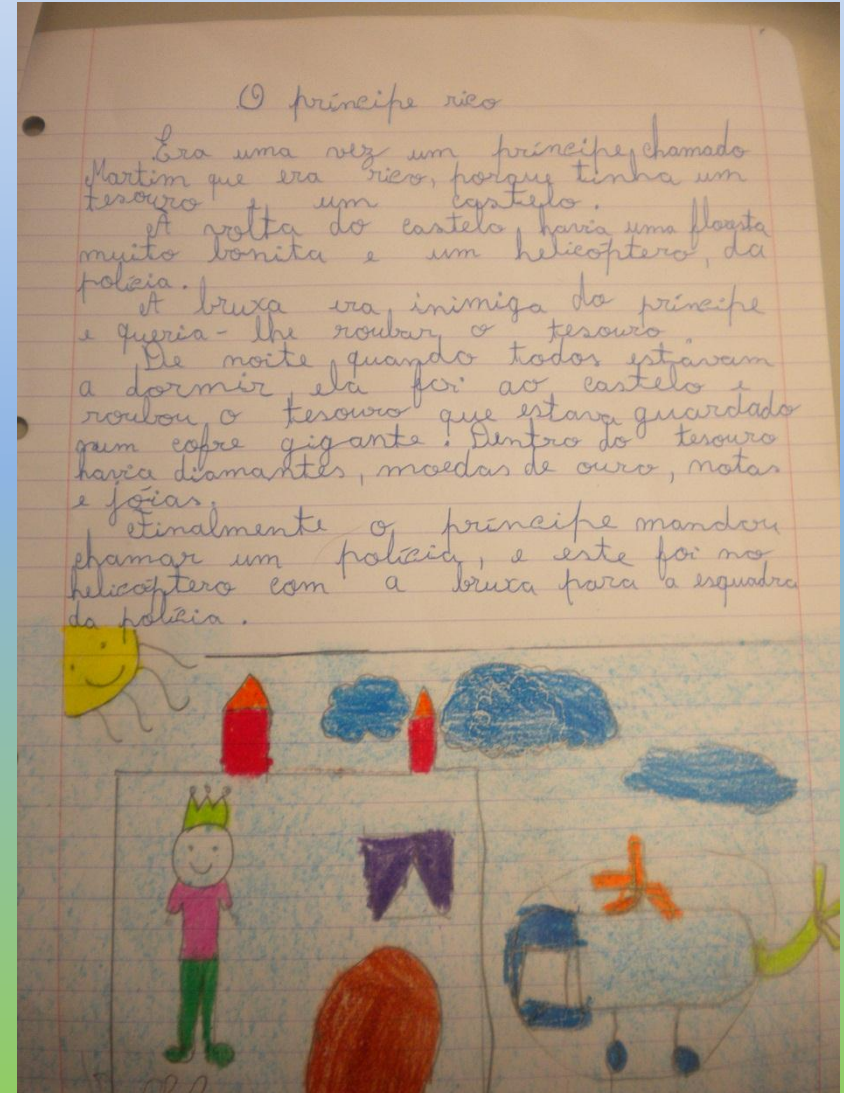 O príncipe rico
Era uma vez um príncipe, chamado
Martim que era rico, porque tinha um
tesouro e um castelo.
À volta do castelo, havia uma floresta
muito bonita e um helicóptero, da
polícia.
A bruxa era inimiga do príncipe
e queria-lhe roubar o tesouro.
De noite quando todos estavam
a dormir ela foi ao castelo e
roubou o tesouro que estava guardado
num cofre gigante. Dentro do tesouro
havia diamantes, moedas de ouro, notas
e jóias.
Finalmente o príncipe mandou
chamar um polícia, e este foi no
helicóptero com a bruxa para a esquadra
da polícia.